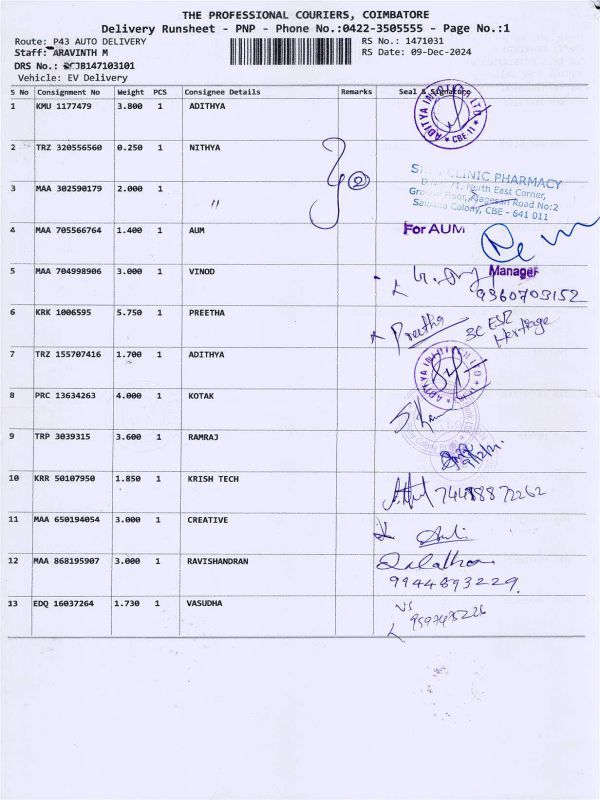 THE PROFESSIONAL COURIERS, COIMBATORE
Delivery Runsheet - PNP - Phone No.:0422-3505555 - Page No.:1
Route: P43 AUTO DELIVERY RS No.: 1471031
Staff: ARAVINTH M RS Date: 09-Dec-2024
DRS No.: JB147103101
Vehicle: EV Delivery
S No Consignment No Weight PCS Consignee Details Remarks Seal & Signature
1 KMU 1177479 3.800 1 ADITHYA
ADITYA INFOTECH LTD
CBE-11
2 TRZ 320556560 0.250 1 NITHYA
CLINIC PHARMACY
North East Corner,
Ground Floor, Nagesan Road No:2
Saibaba Colony, CBE - 641 011
3 MAA 302590179 2.000 1 "
2
4 MAA 705566764 1.400 1 AUM
For AUM
Manager
5 MAA 704998906 3.000 1 VINOD
9360703152
6 KRK 1006595 5.750 1 PREETHA
Preetha
3C
Heritage
7 TRZ 155707416 1.700 1 ADITHYA
ADITYA INFOTECH LTD
8 PRC 13634263 4.000 1 KOTAK
9 TRP 3039315 3.600 1 RAMRAJ
10 KRR 50107950 1.850 1 KRISH TECH
11 MAA 650194054 3.000 1 CREATIVE
12 MAA 868195907 3.000 1 RAVISHANDRAN
9944893229
13 EDQ 16037264 1.730 1 VASUDHA